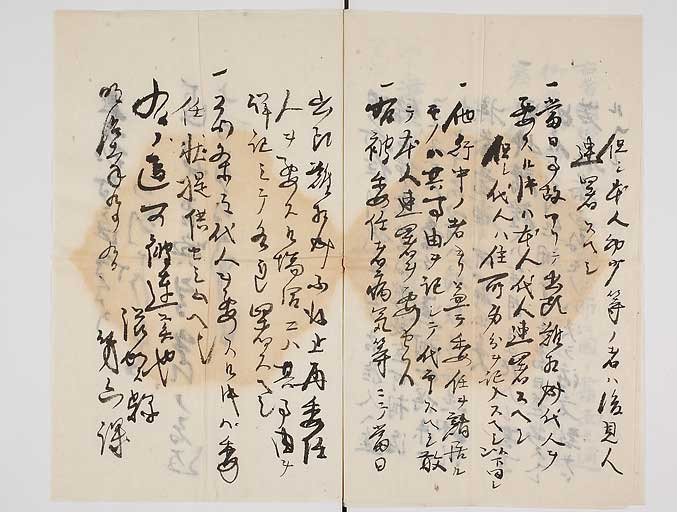 但シ本人幼少等ノ者ハ後見人
連署スヘシ
一當日事故アリテ出頭難相成代人ヲ
要スル時ハ本人代人連署スヘシ
但シ代人ハ住所身分ヲ記入スヘシ以下同シ
一他行中ノ者ヨリ兼テ委任ヲ諸居ル
モノハ其事由ヲ記シテ代印スヘシ敢
テ本人連署ヲ要セス
一若被委任者病気等ニテ當日
出頭難相成不得止再委任
人ヲ要スル場合ニハ其事由ヲ
詳記シテ各自連署スヘシ
一前条之代人ヲ要スル時ハ委
任状提供セシムヘシ
右之通可被達候也
滋賀縣
明治
第六課